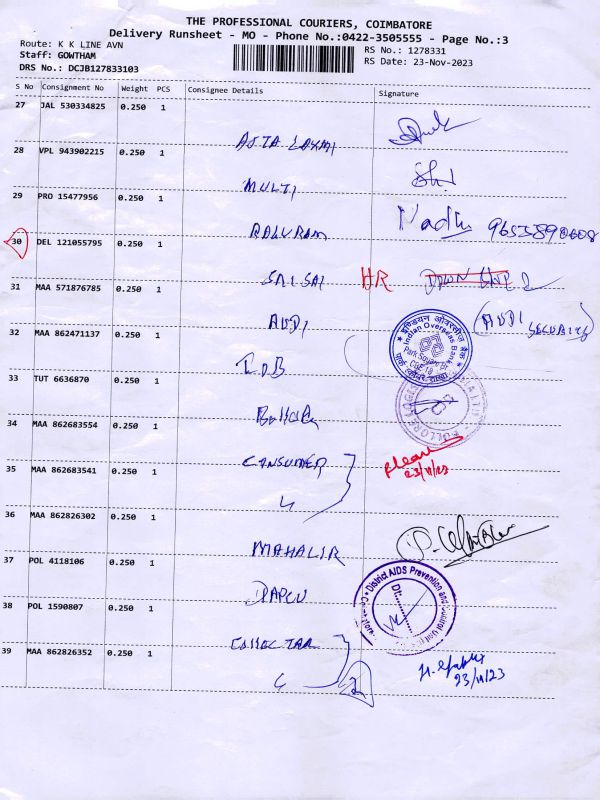 THE PROFESSIONAL COURIERS, COIMBATORE
Delivery Runsheet - MO - Phone No.:0422-3505555 - Page No.:3
Route: K K LINE AVN
RS No.: 1278331
Staff: GOWTHAM
RS Date: 23-Nov-2023
DRS No.: DCJB127833103
S No Consignment No Weight PCS Consignee Details Signature
27 JAL 530334825 0.250 1
LAXMI
28 VPL 943902215 0.250 1
MULTI
29 PRO 15477956 0.250 1
30 DEL 121055795 0.250 1
SRI SAI HR
31 MAA 571876785 0.250 1
AUDI (AUDI SECURITY)
32 MAA 862471137 0.250 1
I O B
इण्डियन ओवरसीज़ बैंक
Indian Overseas Bank
33 TUT 6636870 0.250 1
34 MAA 862683554 0.250 1
CONSUMER
23/11/23
35 MAA 862683541 0.250 1
36 MAA 862826302 0.250 1
MAHALIR
37 POL 4118106 0.250 1
District AIDS Prevention and Control Unit
38 POL 1590807 0.250 1
39 MAA 862826352 0.250 1
23/11/23
2